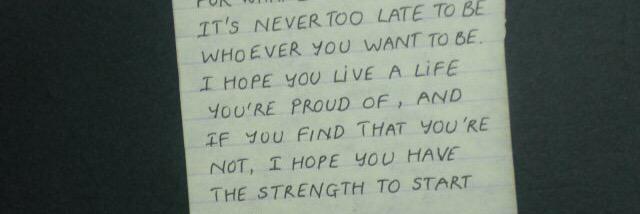 IT'S NEVER TOO LATE TO BE
WHOEVER YOU WANT TO BE.
I HOPE YOU LIVE A LIFE
YOU'RE PROUD OF, AND
IF YOU FIND THAT YOU'RE
NOT, I HOPE YOU HAVE
THE STRENGTH TO START